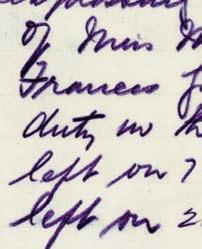 of Miss M
Frances J
duty in th
left on 7
left on 2